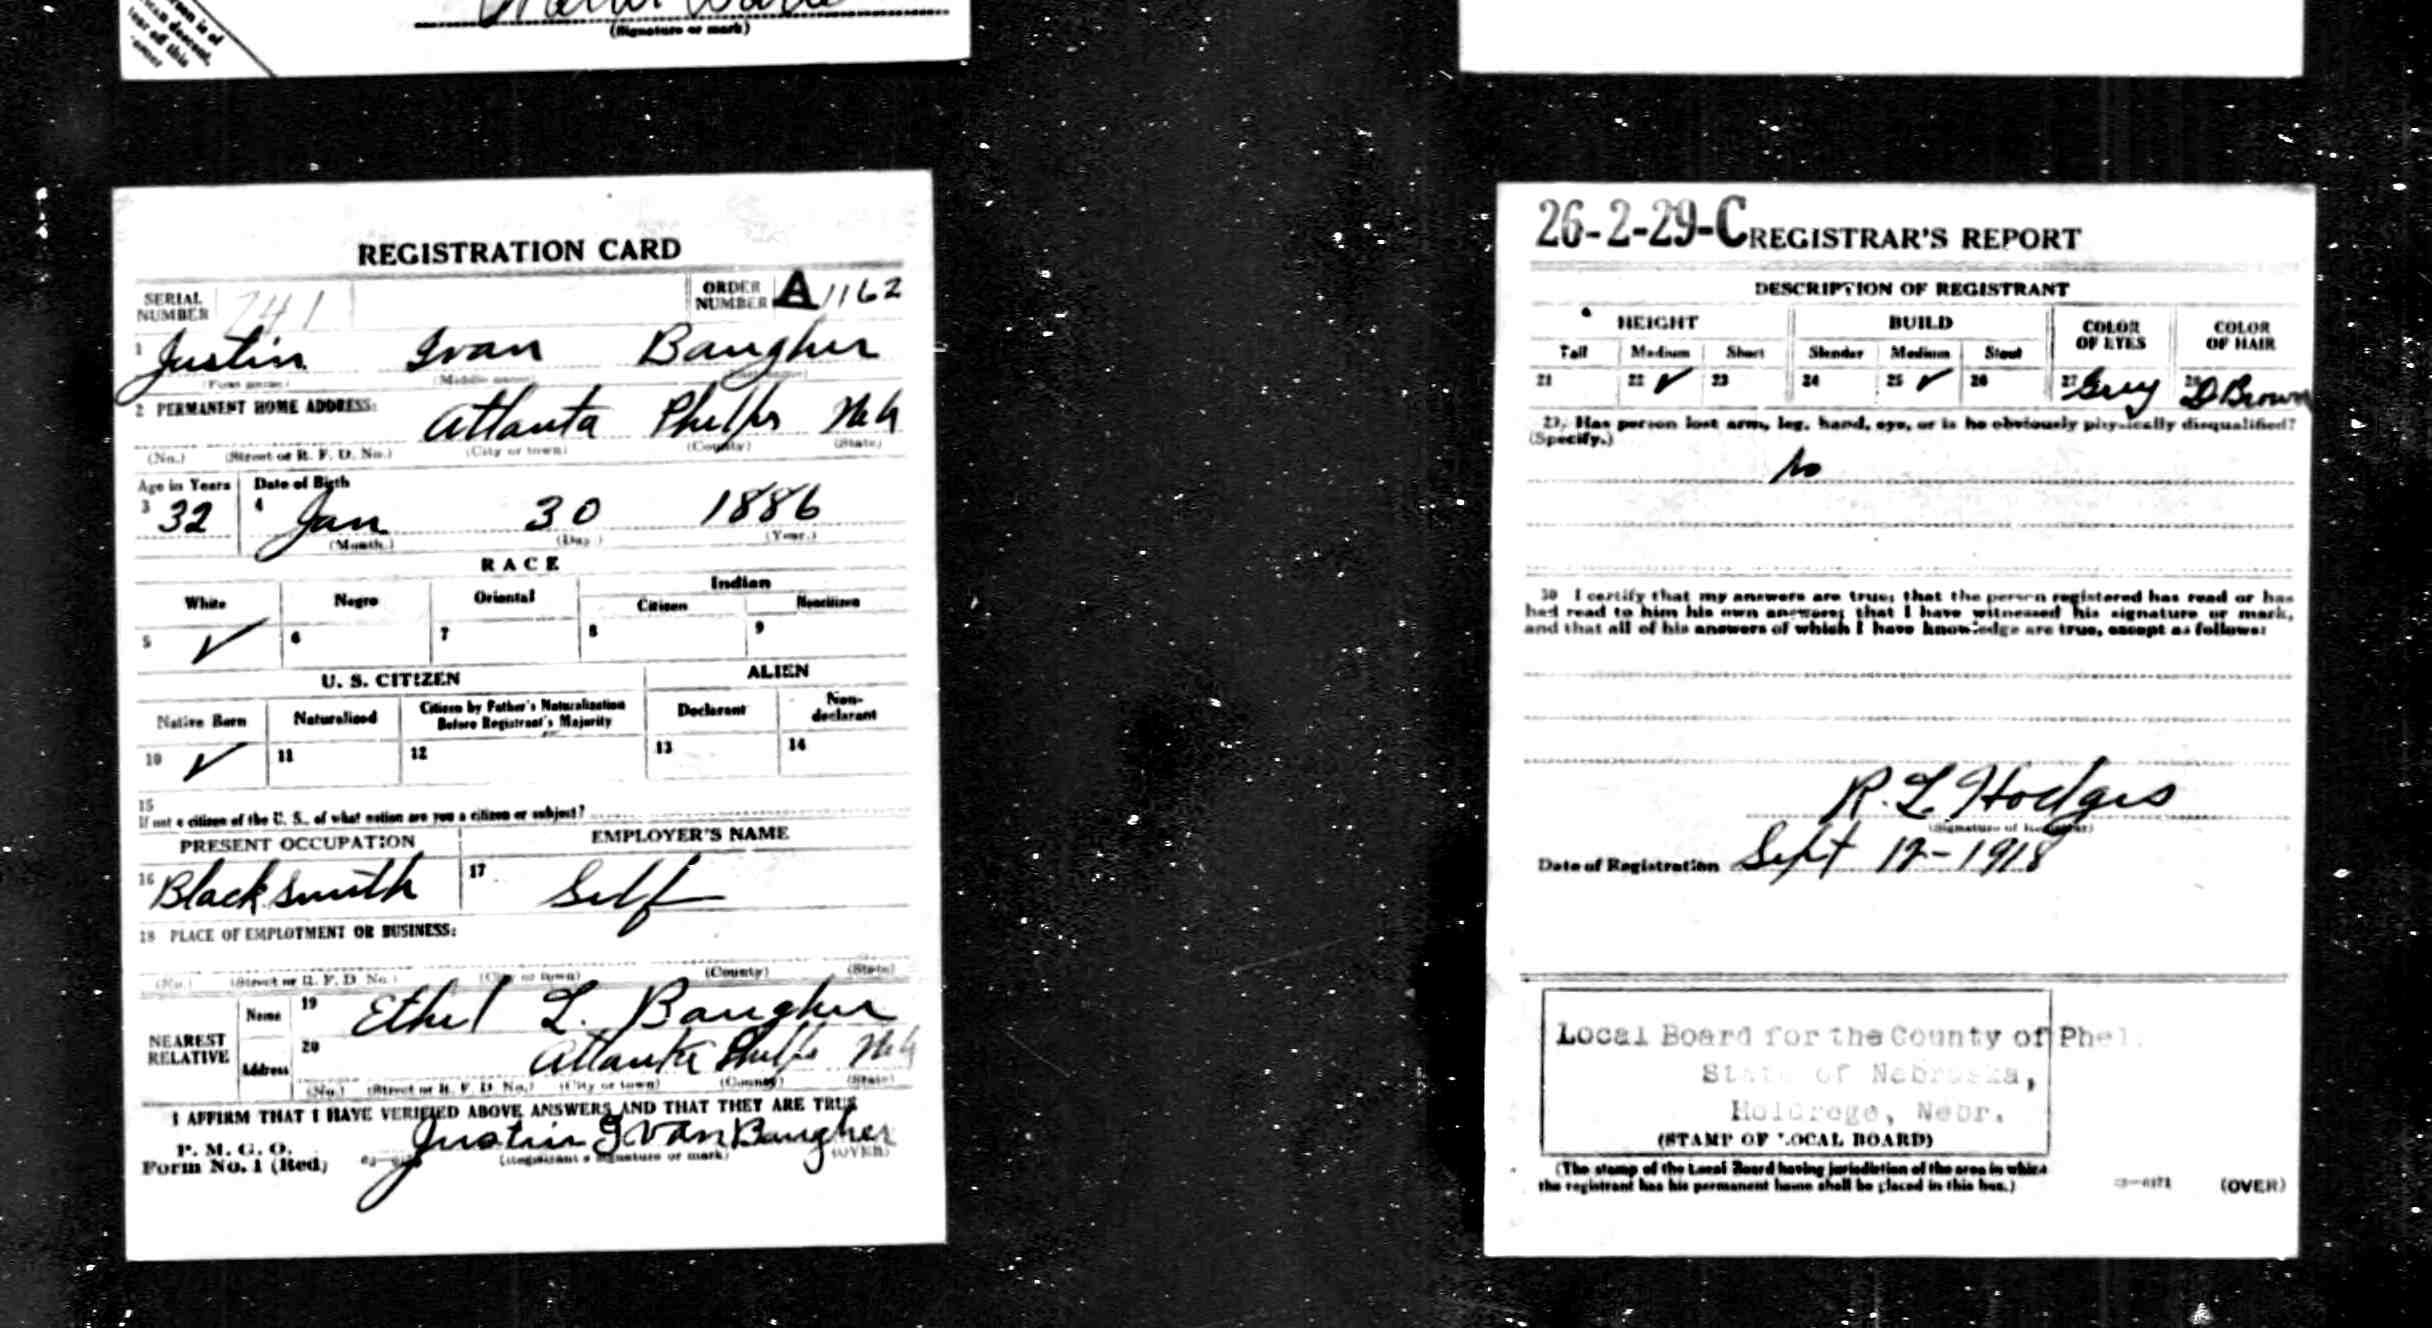 (Signature or mark)
REGISTRATION CARD
SERIAL NUMBER 741 ORDER NUMBER A 1162
1 Justin Ivan Baugher
(First name) (Middle name) (Last name)
2 PERMANENT HOME ADDRESS:
Atlanta Phelps Neb
(No.) (Street or R. F. D. No.) (City or town) (County) (State)
Age in Years Date of Birth
3 32 4 Jan 30 1886
(Month.) (Day.) (Year.)
RACE
White Negro Oriental Indian
Citizen Noncitizen
5 ✓ 6 7 8 9
U. S. CITIZEN ALIEN
Native Born Naturalized Citizen by Father's Naturalization Before Registrant's Majority Declarant Non-declarant
10 ✓ 11 12 13 14
15
If not a citizen of the U. S., of what nation are you a citizen or subject?
PRESENT OCCUPATION EMPLOYER'S NAME
16 Blacksmith 17 Self
18 PLACE OF EMPLOYMENT OR BUSINESS:
(No.) (Street or R. F. D. No.) (City or town) (County) (State)
NEAREST RELATIVE
Name 19 Ethel L. Baugher
Address 20 Atlanta Phelps Neb
(No.) (Street or R. F. D. No.) (City or town) (County) (State)
I AFFIRM THAT I HAVE VERIFIED ABOVE ANSWERS AND THAT THEY ARE TRUE
P. M. G. O.
Form No. 1 (Red)
Justin Ivan Baugher
(Registrant's signature or mark) (OVER)
26-2-29-C REGISTRAR'S REPORT
DESCRIPTION OF REGISTRANT
HEIGHT BUILD COLOR OF EYES COLOR OF HAIR
Tall Medium Short Slender Medium Stout
21 22 ✓ 23 24 25 ✓ 26 27 Grey 28 D Brown
29. Has person lost arm, leg, hand, eye, or is he obviously physically disqualified?
(Specify.)
No
30 I certify that my answers are true; that the person registered has read or has
had read to him his own answers; that I have witnessed his signature or mark,
and that all of his answers of which I have knowledge are true, except as follows:
R. L. Hodges
(Signature of Registrar)
Date of Registration Sept 12-1918
Local Board for the County of Phel
State of Nebraska,
Holdrege, Nebr.
(STAMP OF LOCAL BOARD)
(The stamp of the Local Board having jurisdiction of the area in which
the registrant has his permanent home shall be placed in this box.)
(OVER)